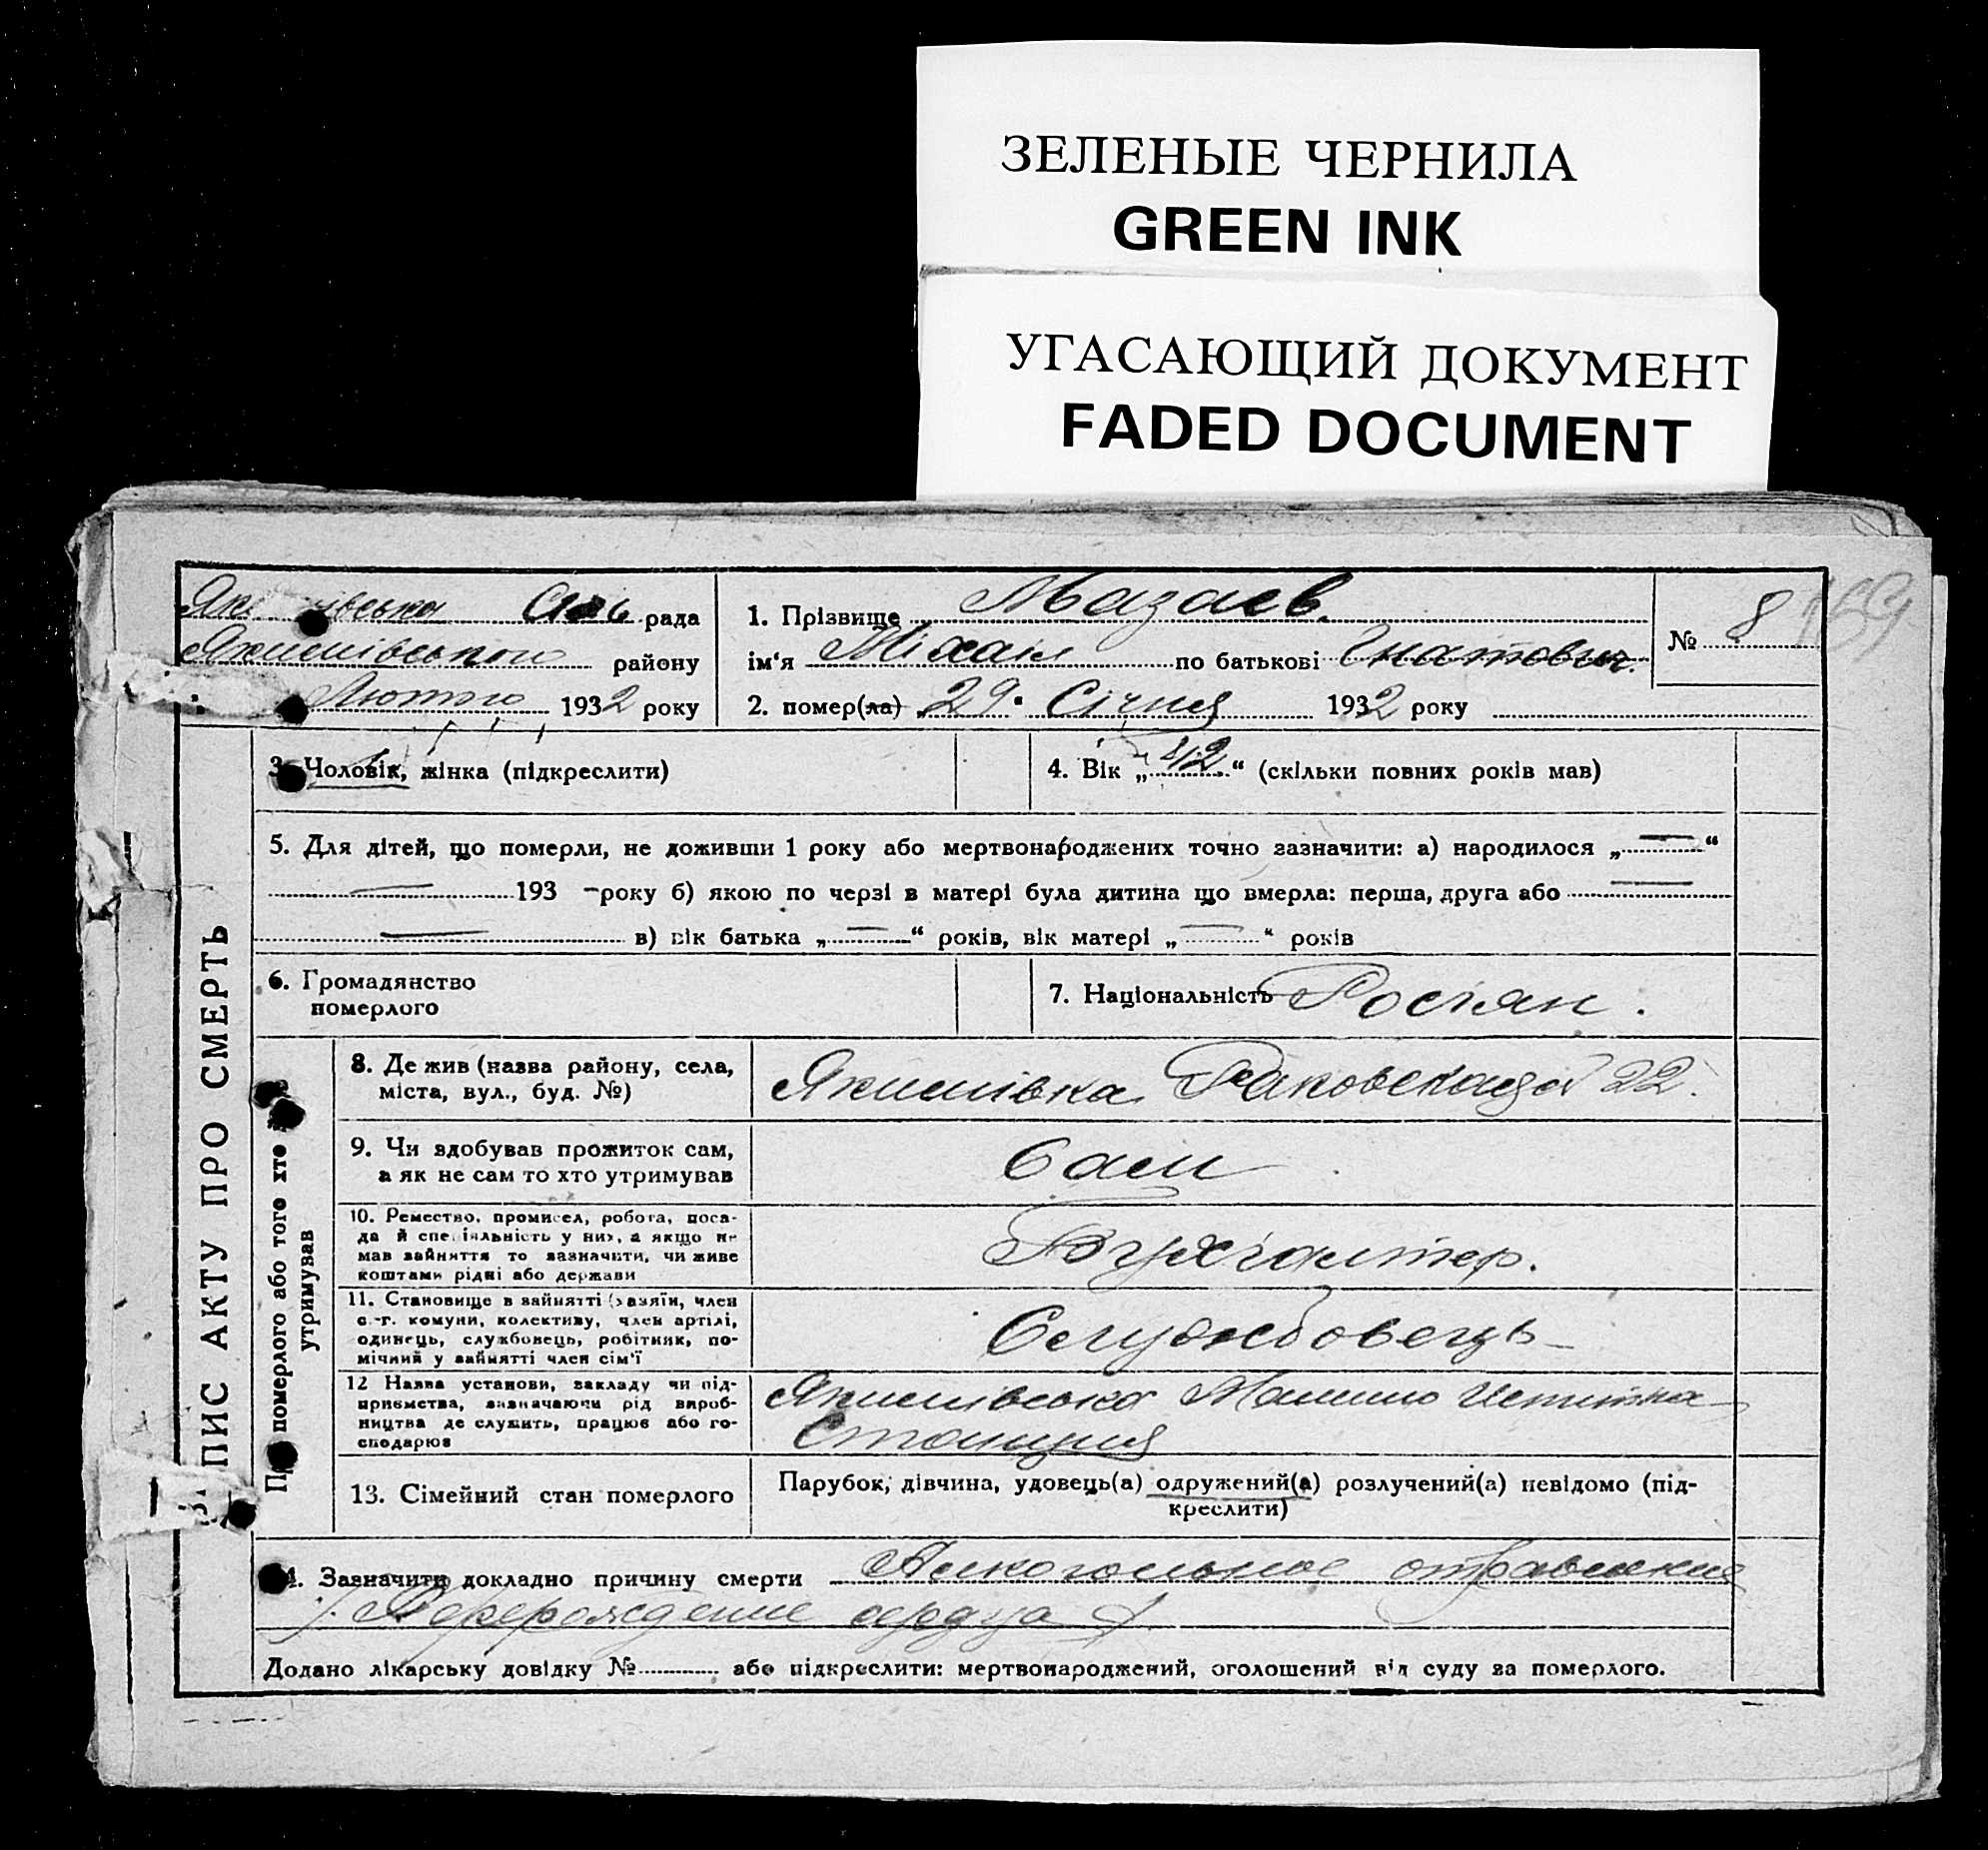 ЗЕЛЕНЫЕ ЧЕРНИЛА
GREEN INK
УГАСАЮЩИЙ ДОКУМЕНТ
FADED DOCUMENT
рада
Якимівського району
Лютого 1932 року
1. Прізвище Мазаев.
ім'я Міхаіл по батькові Гнатович.
2. помер(ла) „29" Січня 1932 року
№ 8
159
ЗАПИС АКТУ ПРО СМЕРТЬ
3. Чоловік, жінка (підкреслити)
4. Вік „42" (скільки повних років мав)
5. Для дітей, що померли, не доживши 1 року або мертвонароджених точно зазначити: а) народилося „—"
— 193 — року б) якою по черзі в матері була дитина що вмерла: перша, друга або —
— в) вік батька „—" років, вік матері „—" років
6. Громадянство
померлого
7. Національність Росіян.
Про померлого або того хто
утримував
8. Де жив (назва району, села,
міста, вул., буд. №)
Якимівка Раковская 22.
9. Чи здобував прожиток сам,
а як не сам то хто утримував
Сам
10. Ремество, промисел, робота, поса-
да й спеціяльність у них, а якщо не
мав зайняття то зазначити, чи живе
коштами рідні або держави
Бухгалтер.
11. Становище в зайнятті (хазяїн, член
с.-г. комуни, колективу, член артілі,
одинець, службовець, робітник, по-
мічний у зайнятті член сім'ї
Службовець
12 Назва установи, закладу чи під-
приємства, зазначаючи рід вироб-
ництва де служить, працює або го-
сподарює
Якимівська Машино
Станция
13. Сімейний стан померлого
Парубок, дівчина, удовець(а) одружений(а) розлучений(а) невідомо (під-
креслити)
14. Зазначити докладно причину смерти Алкогольное отравление
Перерождение сердца
Додано лікарську довідку № або підкреслити: мертвонароджений, оголошений від суду за померлого.